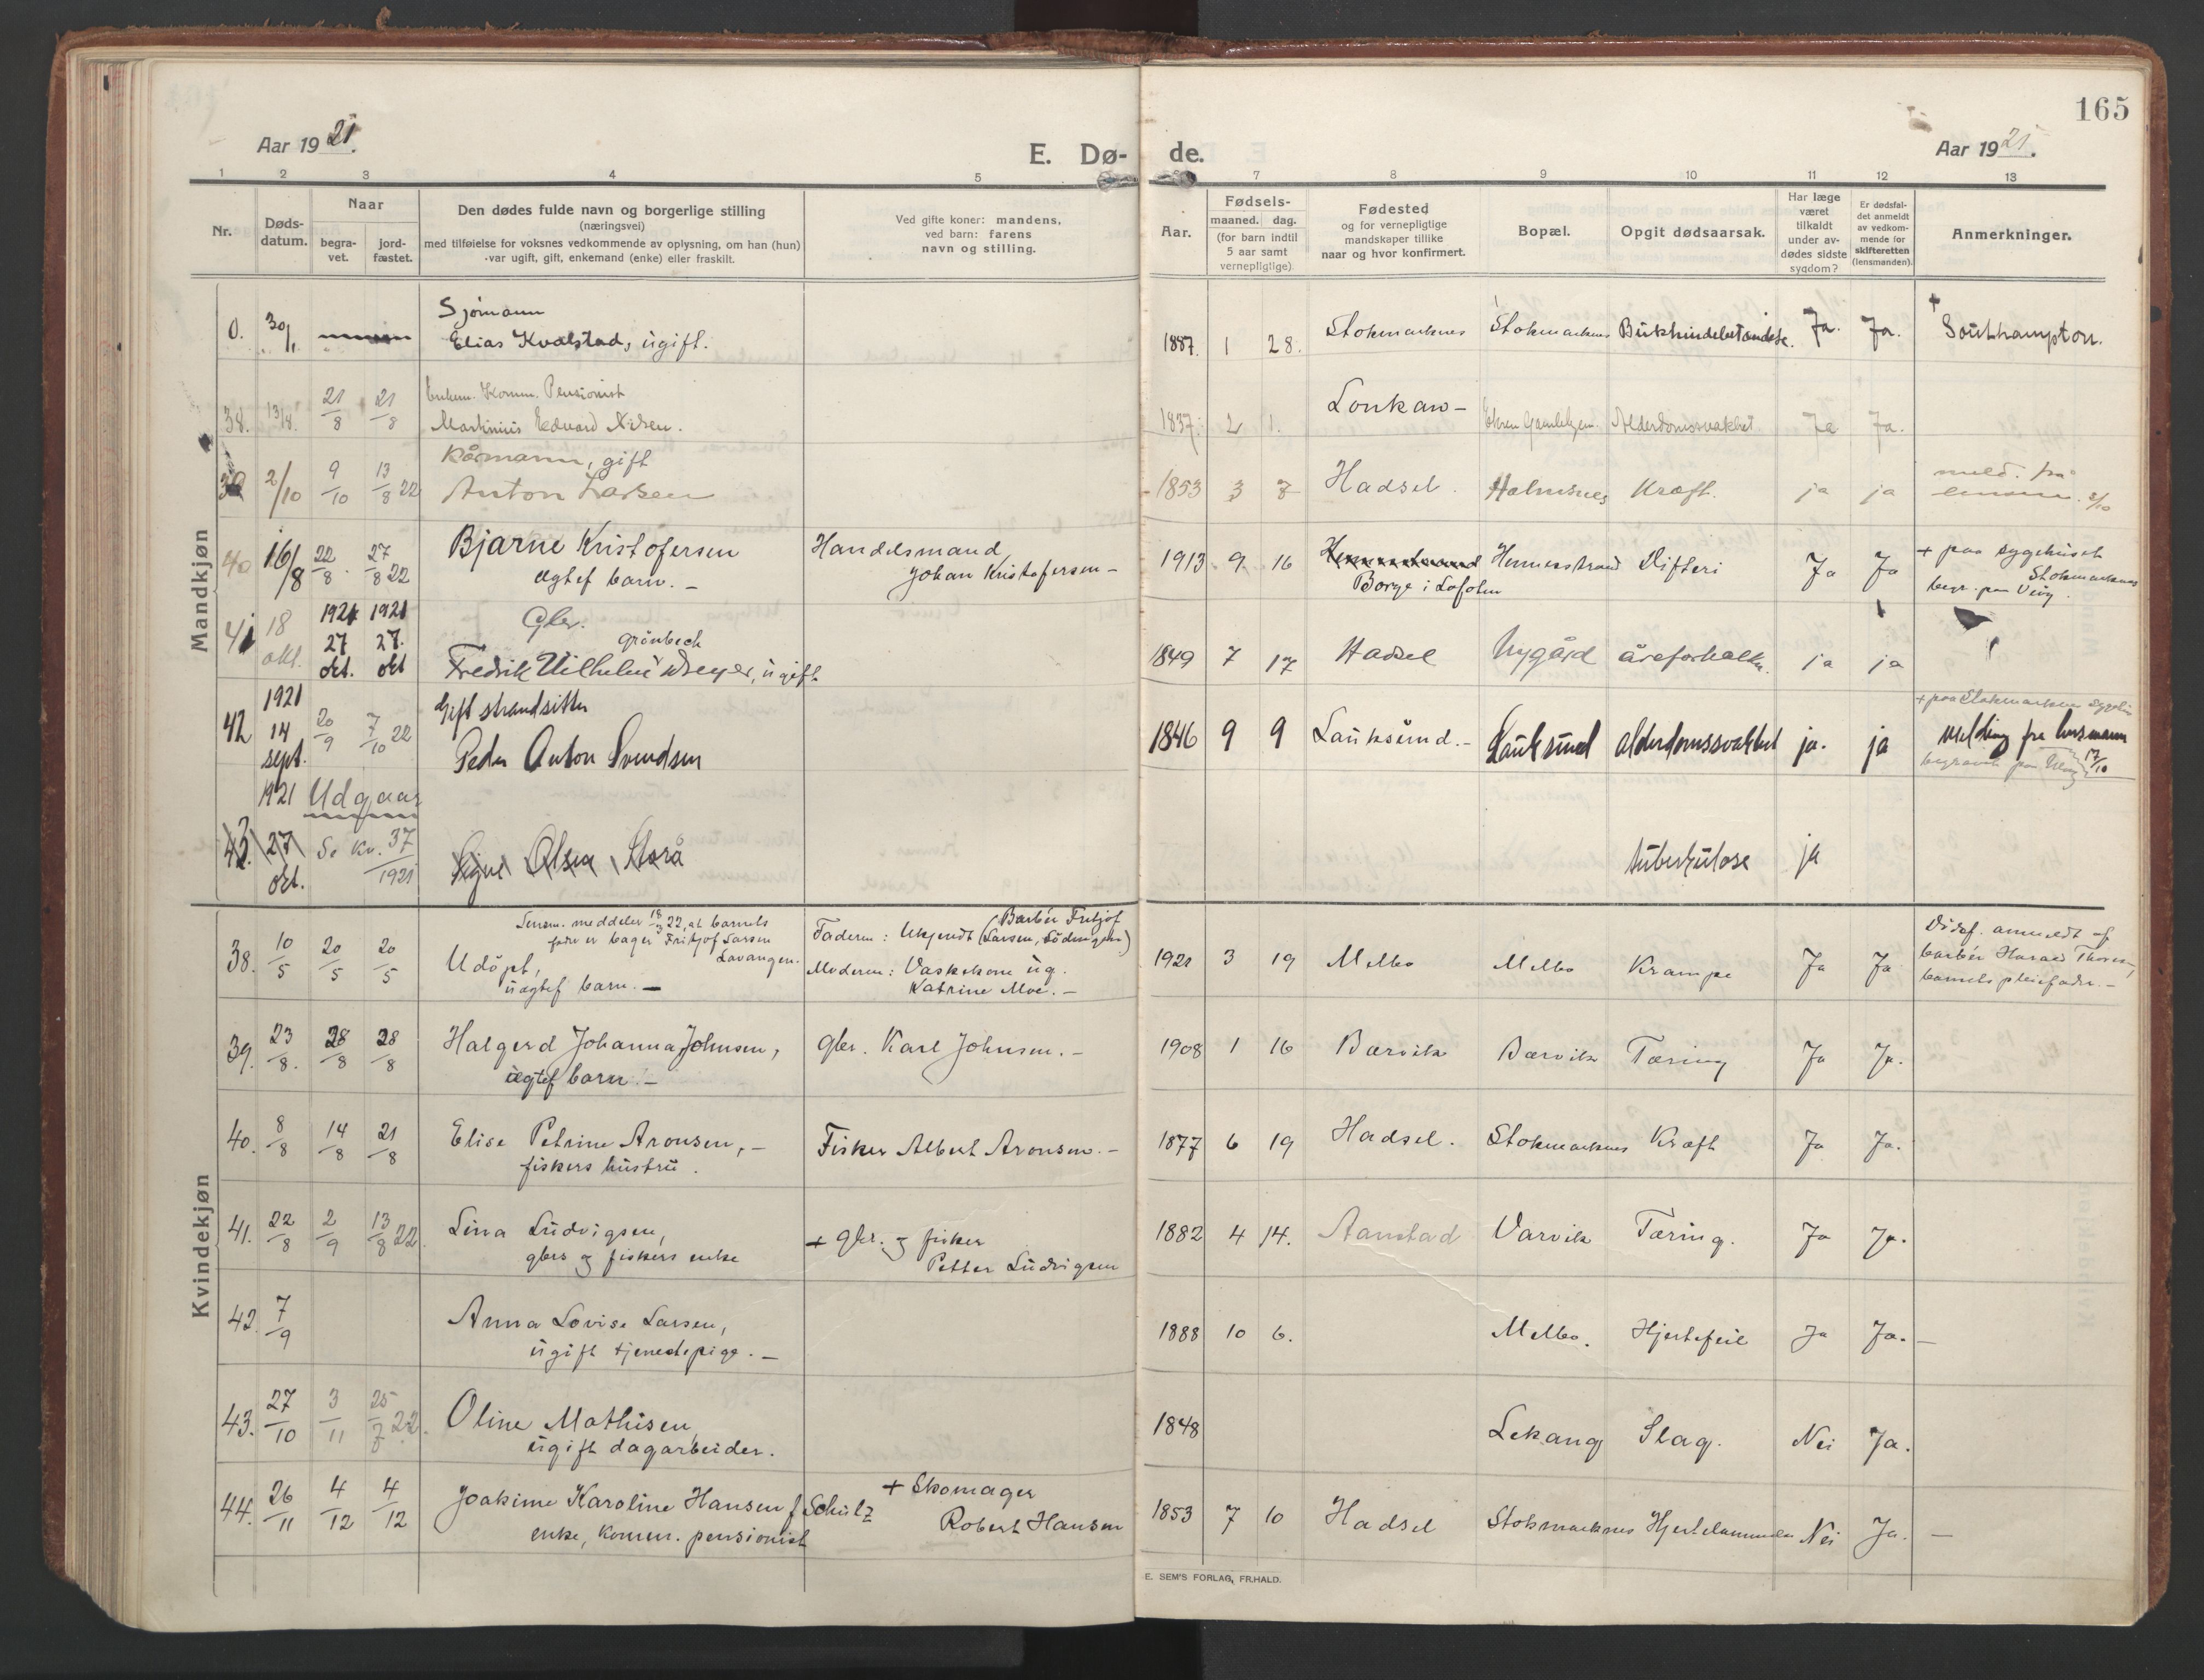 165
Aar 1921.
E. Dø- de.
Aar 1921.
1 2 3 4 5 7 8 9 10 11 12 13
Nr.
Døds-
datum.
Naar
begra-
vet.
jord-
fæstet.
Den dødes fulde navn og borgerlige stilling
(næringsvei)
med tilføielse for voksnes vedkommende av oplysning, om han (hun)
var ugift, gift, enkemand (enke) eller fraskilt.
Ved gifte koner: mandens,
ved barn: farens
navn og stilling.
Aar.
Fødsels-
maaned. dag.
(for barn indtil
5 aar samt
vernepligtige)
Fødested
og for vernepligtige
mandskaper tillike
naar og hvor konfirmert.
Bopæl.
Opgit dødsaarsak.
Har læge
været
tilkaldt
under av-
dødes sidste
sygdom?
Er dødsfal-
det anmeldt
av vedkom-
mende for
skifteretten
(lensmanden).
Anmerkninger.
Mandkjøn
Sjømann
0. 30/1 Elias Kvalstad, ugift. 1887. 1 28. Stokmarknes Stokmarknes Bukhindebetændelse. Ja. Ja. + Southampton.
Enkem. Komm. Pensionist
38. 13/8. 21/8 21/8 Martinius Edvard Nilsen. 1837. 2 1. Lonkan- Gamlehjem. Alderdomssvakhet Ja Ja.
Kårmann, gift
39 2/10 9/10 13/8 22 Anton Larsen 1853 3 8 Hadsel. Holmsnes Kræft. ja ja meld. fra
lensm. 2/10
40 16/8 22/8. 27/8 22 Bjarne Kristofersen Handelsmand 1913 9 16 Hennesstrand Difteri Ja Ja + paa sygehuset
ægtef barn. - Johan Kristofersen - Borge i Lofoten Stokmarknes
begr. paa
41 18 okt. 1921 27 okt. 1921 27. okt Gbr.
Grönbech
Fredrik Vilhelm Dreyer, ugift 1849 7 17 Hadsel Nygård åreforkalkn. ja ja
42 1921 14 sept. 20/9 7/10 22 Gift strandsitter + paa Stokmarknes sygehus
Peder Anton Svendsen 1846 9 9 Lauksund.- Lauksund alderdomssvakhet ja. ja melding fra lensmann
17/10
begravet paa
1921 Udgaar
43. 27 okt. Se Kv. 37/1921 Signe Olsen Storå tuberkulose ja
Kvindekjøn
Lensm. meddeler 18/3 22, at barnets
fader er bager Fritjof Larsen
Lavangen.
38. 10/5 20/5 20/5 Udöpt,
uægtef barn. -
Faderen: Ukjendt (Barbér Fritjof
Larsen, Lödingen)
Moderen: Vaskekone ug.
Katrine Moe. -
1921 3 19 Melbo Melbo Krampe Ja Ja Dödsf. anmeldt af
barbér Harald Thoresen,
barnets pleiefader. -
39. 23/8. 28/8 28/8 Halgerd Johanna Johnsen, gbr. Karl Johnsen. - 1908 1 16 Barvik Barvik Tæring Ja Ja.
ægtef barn. -
40. 8/8 14/8 21/8 Elise Petrine Aronsen, - Fisker Albert Aronsen. - 1877 6 19 Hadsel. Stokmarknes Kræft Ja Ja.
fiskers hustru.
41. 22/8 2/9 13/8 22. Lina Ludvigsen, + gbr. og fisker 1882 4 14. Aanstad Varvik Tæring. Ja Ja.
gbrs og fiskers enke Petter Ludvigsen
42. 7/9 Anna Lovise Larsen, 1888 10 6. Melbo. Hjertefeil Ja Ja. -
ugift tjenestepige. -
43. 27/10 3/11 25/7 22. Oline Mathisen, 1848 Lekang Slag. Nei Ja.
ugift dagarbeider.
44. 26/11 4/12 4/12 Joakime Karoline Hansen f. Schulz + Skomager 1853 7 10 Hadsel Stokmarknes Hjertelammelse Nei Ja. -
enke, komm. pensionist Robert Hansen
E. SEM'S FORLAG, FR.HALD.